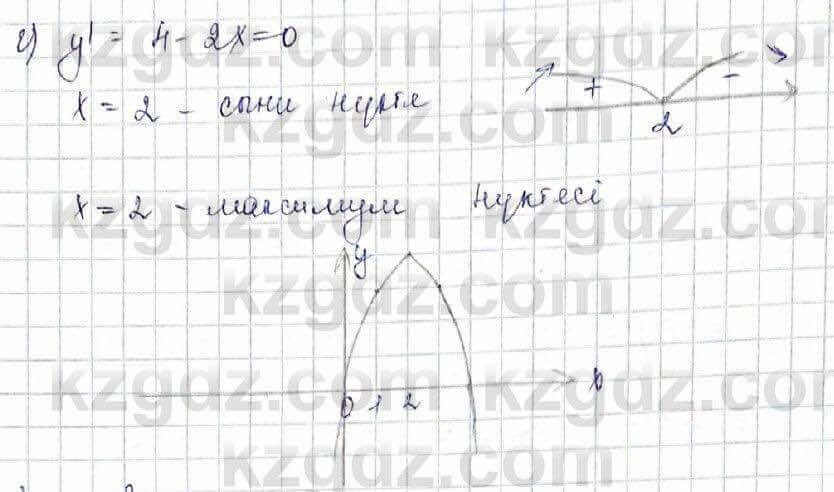 г) y' = 4 - 2x = 0
x = 2 - сыни нүкте
+ -
2
x = 2 - максимум нүктесі
y
0 1 2 x
kzgdz.com